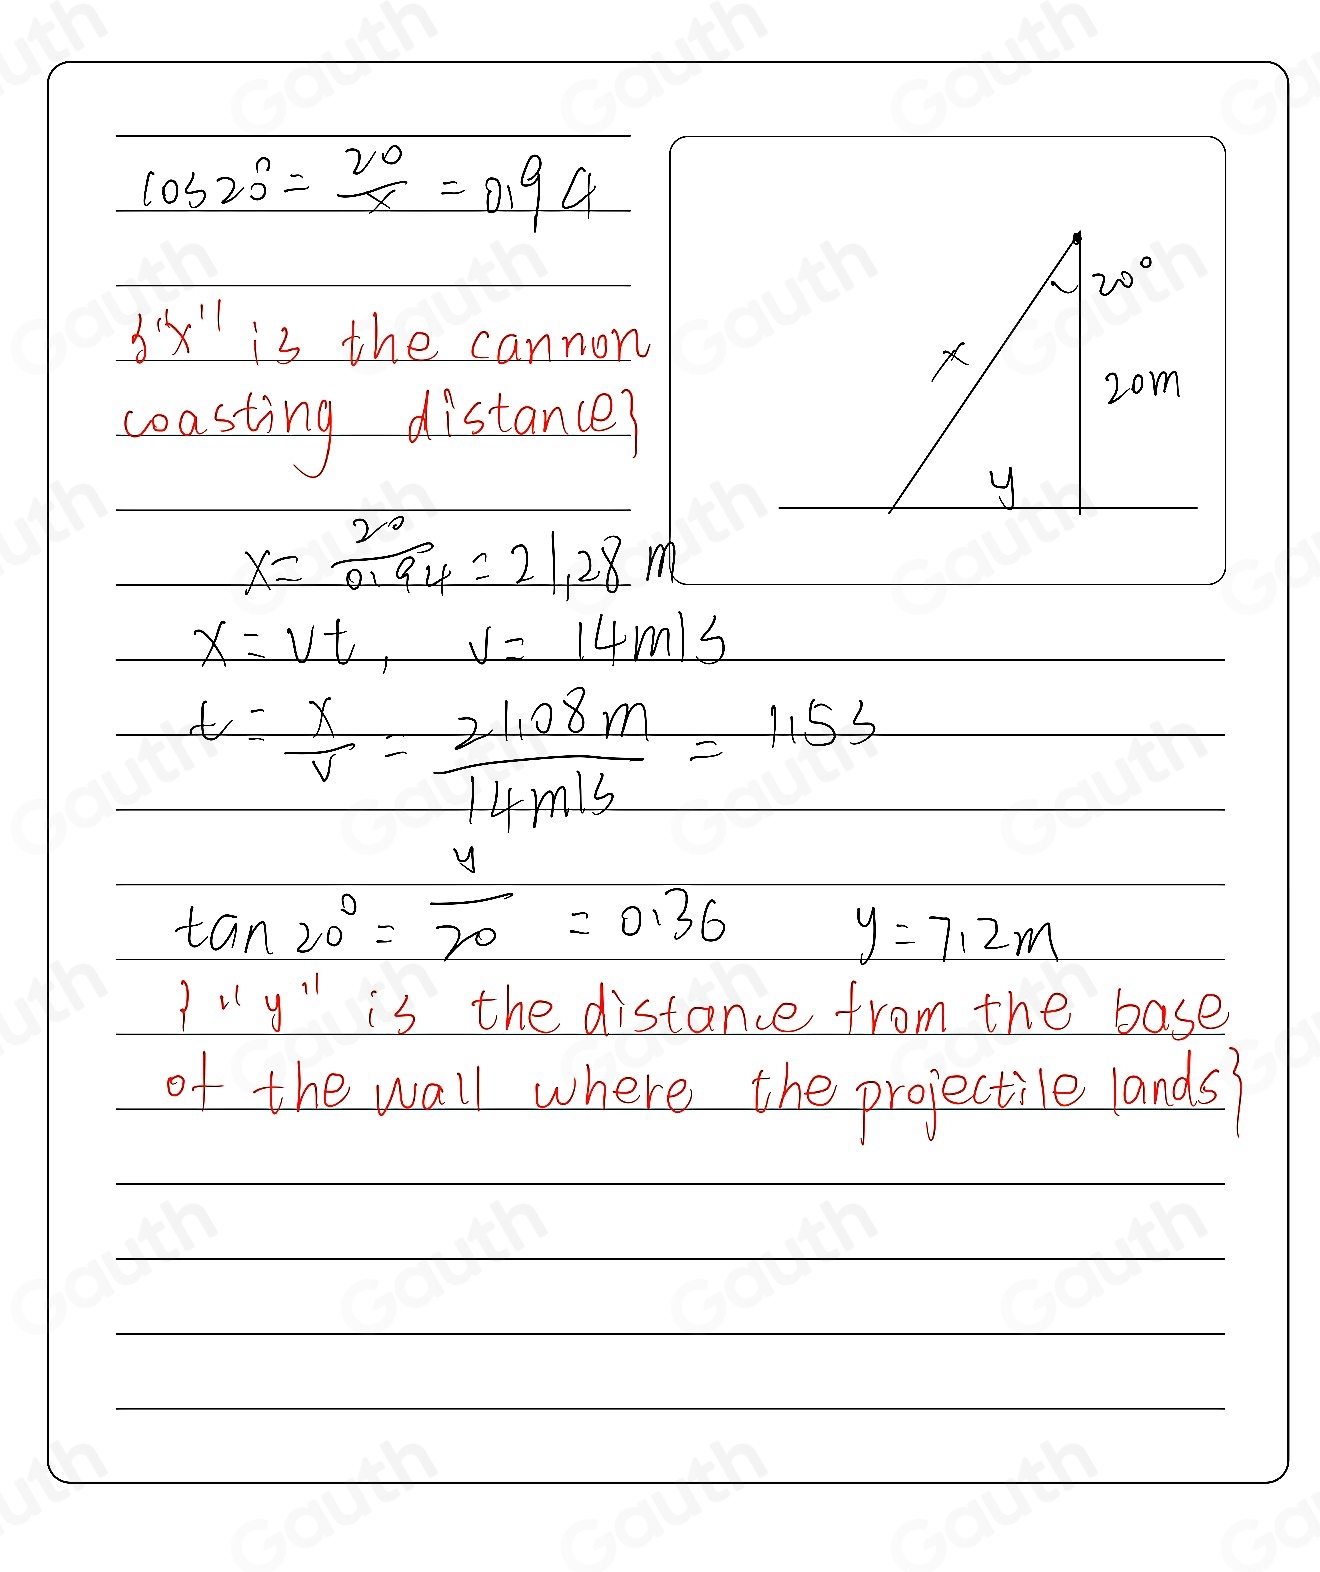 cos20° = 20/x = 0,94
{"x" is the cannon
coasting distance}
x = 20/0,94 = 21,28 m
x = vt, v = 14m/s
t = x/v = 21,08m/14m/s = 1,5s
tan 20° = y/20 = 0,36 y = 7,2m
{"y" is the distance from the base
of the wall where the projectile lands}
20°
x
20m
y
Gauth